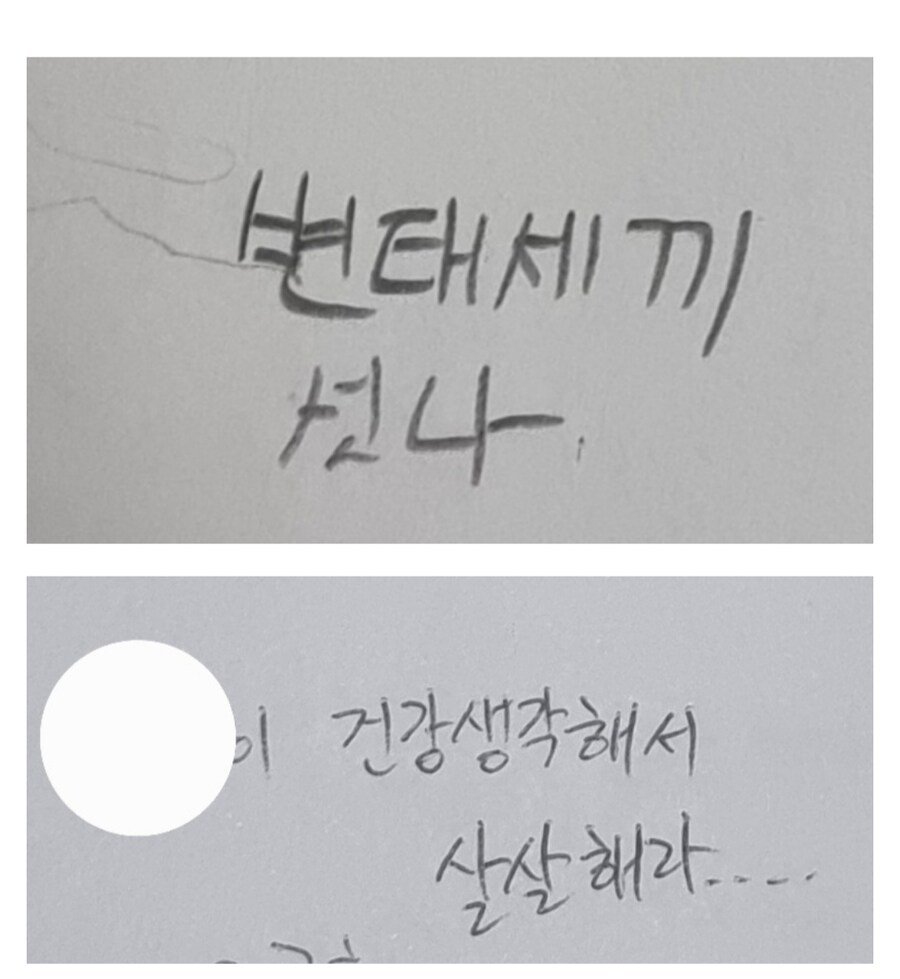 변태세끼
섰나.
이 건강생각해서
살살해라.....